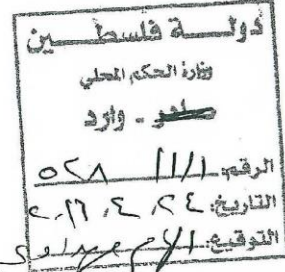 دولـــة فلسطـــين
وزارة الحكم المحلي
صادر - وارد
الرقم: ١١/١ ٥٢٨
التاريخ: ٢٤ ٤
التوقيع: